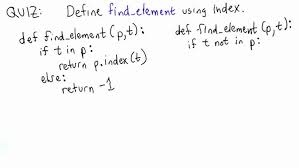 QUIZ: Define find_element using index.
def find_element(p,t):
if t in p:
return p.index(t)
else:
return -1
def find_element(p,t):
if t not in p: